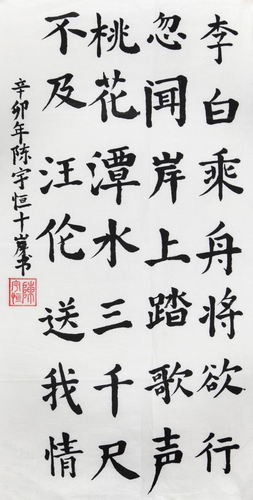 李白乘舟将欲行
忽闻岸上踏歌声
桃花潭水三千尺
不及汪伦送我情
辛卯年陈宇恒十岁书
陈宇恒